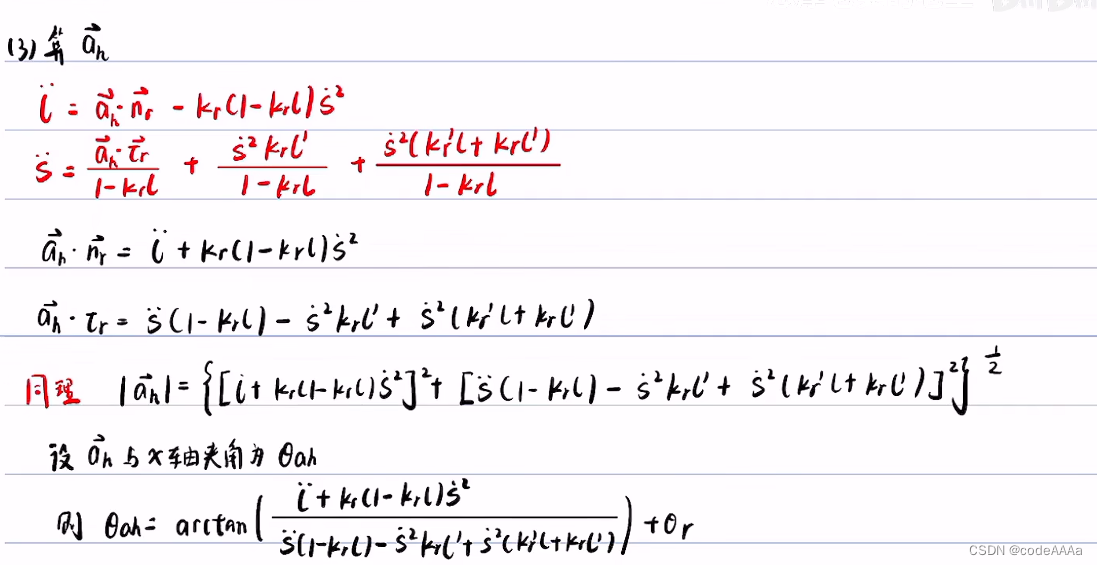 (3) 算 $\vec{a}_h$
$\ddot{l} = \vec{a}_h \cdot \vec{n}_r - k_r(1-k_r l)\dot{s}^2$
$\ddot{s} = \frac{\vec{a}_h \cdot \vec{\tau}_r}{1-k_r l} + \frac{\dot{s}^2 k_r l'}{1-k_r l} + \frac{\dot{s}^2(k_r' l + k_r l')}{1-k_r l}$
$\vec{a}_h \cdot \vec{n}_r = \ddot{l} + k_r(1-k_r l)\dot{s}^2$
$\vec{a}_h \cdot \tau_r = \ddot{s}(1-k_r l) - \dot{s}^2 k_r l' + \dot{s}^2(k_r' l + k_r l')$
同理 $|\vec{a}_h| = \left\{ [\ddot{l} + k_r(1-k_r l)\dot{s}^2]^2 + [\ddot{s}(1-k_r l) - \dot{s}^2 k_r l' + \dot{s}^2(k_r' l + k_r l')]^2 \right\}^{\frac{1}{2}}$
设 $\vec{a}_h$ 与 x 轴夹角为 $\theta_{ah}$
则 $\theta_{ah} = \arctan\left( \frac{\ddot{l} + k_r(1-k_r l)\dot{s}^2}{\ddot{s}(1-k_r l) - \dot{s}^2 k_r l' + \dot{s}^2(k_r' l + k_r l')} \right) + \theta_r$
CSDN @codeAAAa